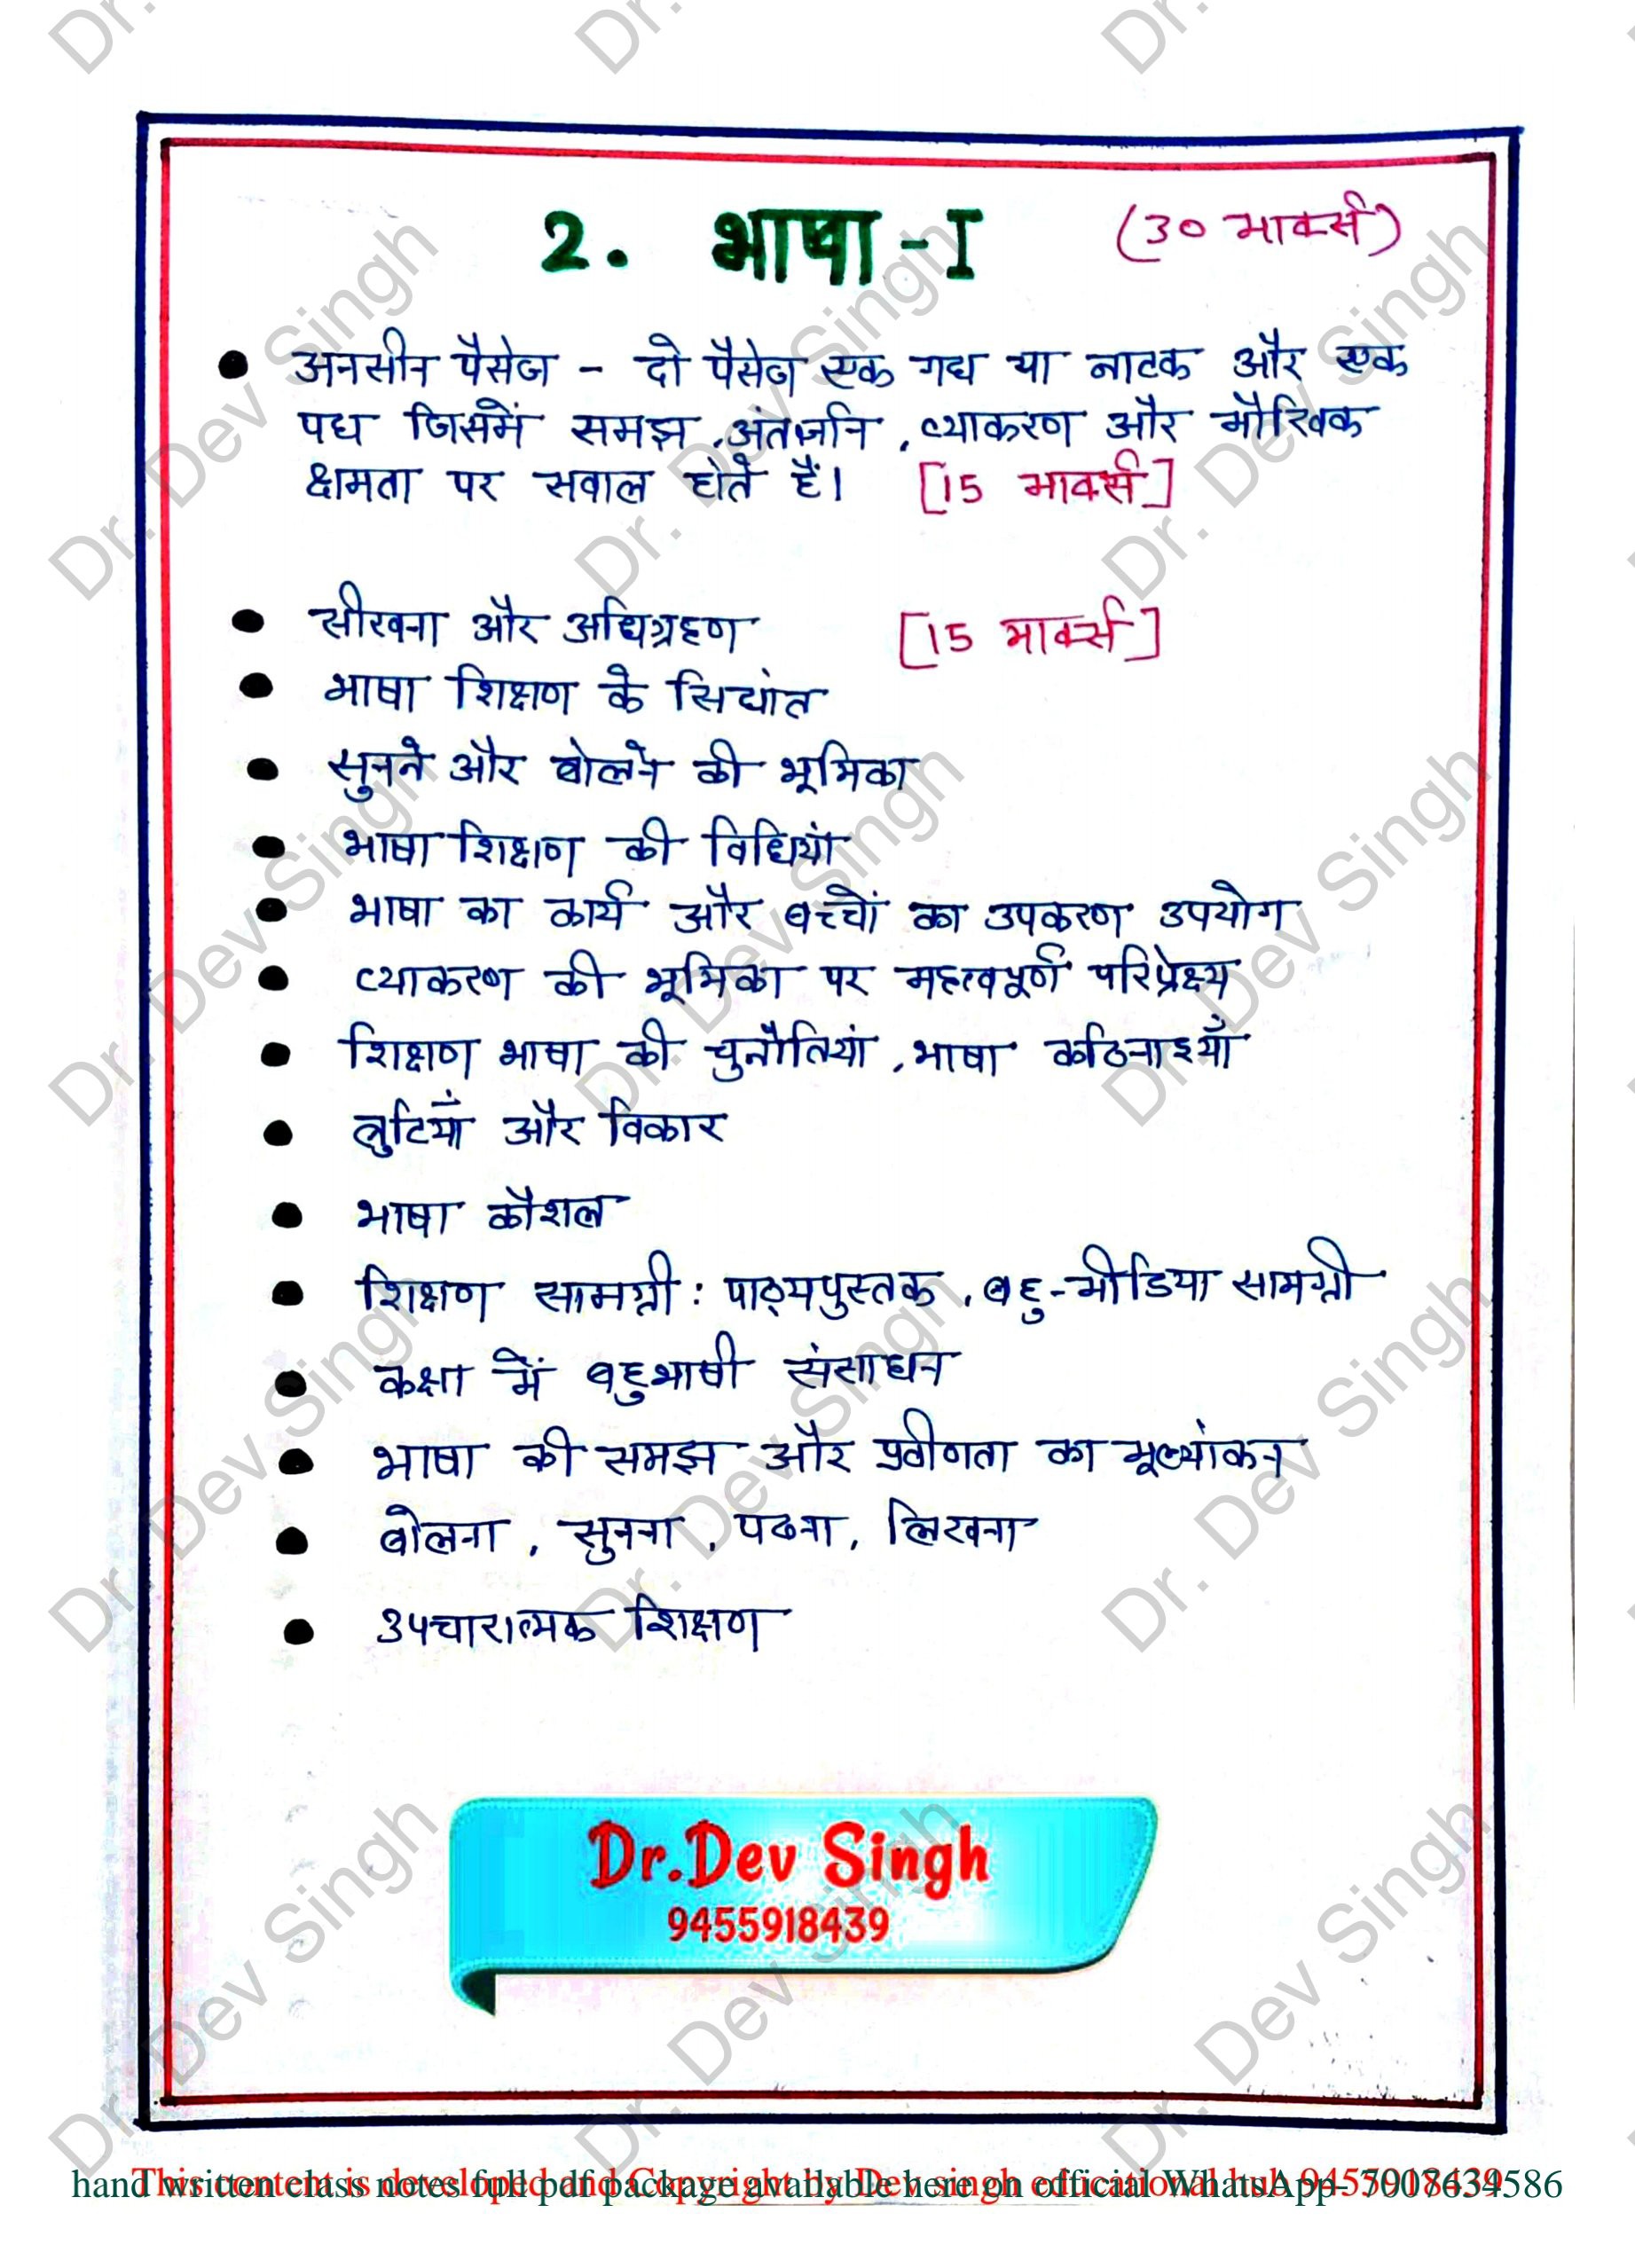 2. भाषा -I (30 मार्क्स)
• अनसीन पैसेज - दो पैसेज एक गद्य या नाटक और एक
पद्य जिसमें समझ, अंतर्ज्ञान, व्याकरण और मौखिक
क्षमता पर सवाल होते हैं। [15 मार्क्स]
• सीखना और अधिग्रहण [15 मार्क्स]
• भाषा शिक्षण के सिद्यांत
• सुनने और बोलने की भूमिका
• भाषा शिक्षण की विधियां
• भाषा का कार्य और बच्चों का उपकरण उपयोग
• व्याकरण की भूमिका पर महत्वपूर्ण परिप्रेक्ष्य
• शिक्षण भाषा की चुनौतियां, भाषा कठिनाइयाँ
• त्रुटियाँ और विकार
• भाषा कौशल
• शिक्षण सामग्री : पाठ्यपुस्तक, बहु-मीडिया सामग्री
• कक्षा में बहुभाषी संसाधन
• भाषा की समझ और प्रवीणता का मूल्यांकन
• बोलना, सुनना, पढना, लिखना
• उपचारात्मक शिक्षण
Dr.Dev Singh
9455918439
hand written class notes full pdf package available here on official WhatsApp- 7007634586
This content is developed and Copyright by Dev singh educational hub 9455918439
Dr. Dev Singh